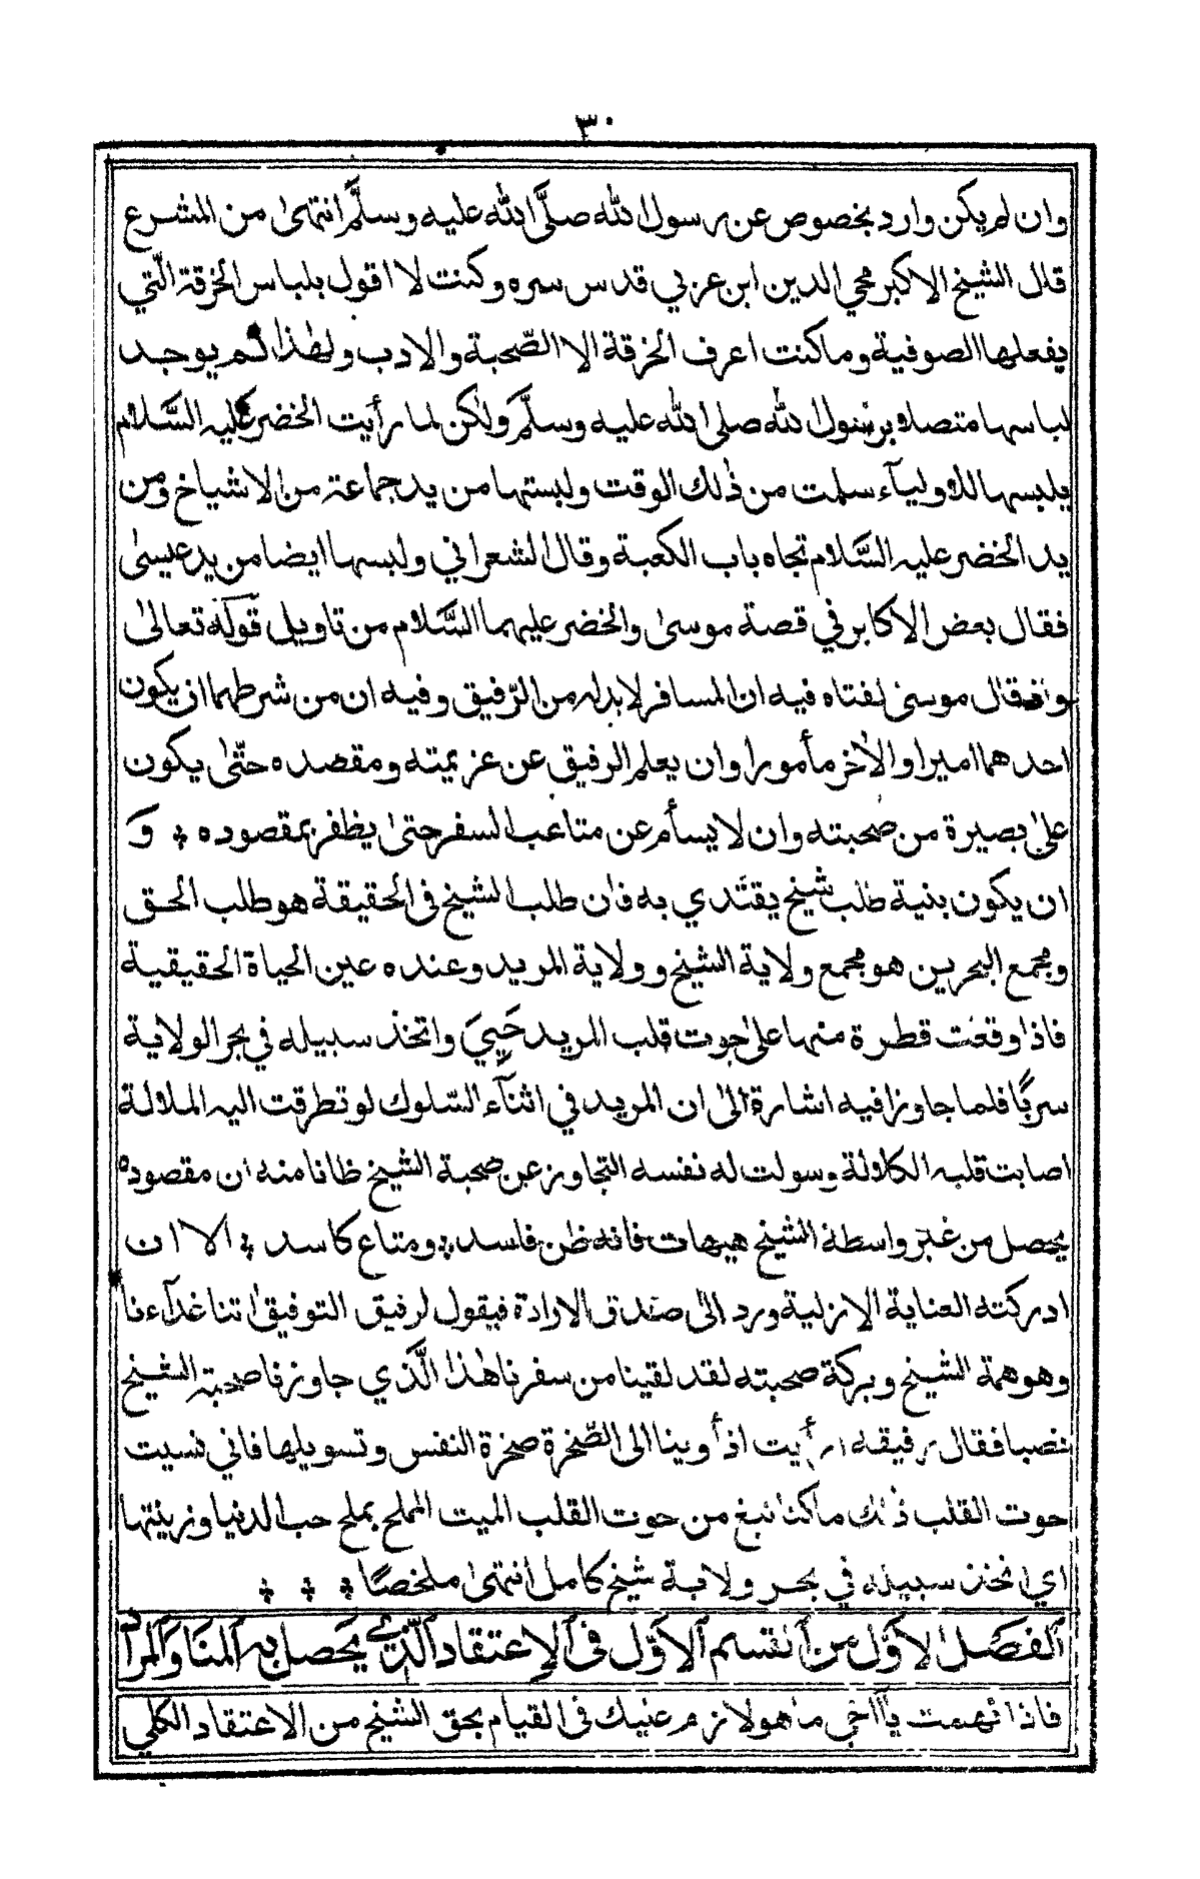 ٣٠
وان لم يكن وارد بخصوص عن رسول الله صلَّى الله عليه وسلَّم انتهىٰ من المشرع
قال الشيخ الاكبر محي الدين ابن عربي قدس سره وكنت لا اقول بلباس الخرقة الّتي
يفعلها الصوفية وما كنت اعرف الخرقة الا الصّحبة والادب ولهٰذا لم يوجد
لباسها متصلا برسول الله صلى الله عليه وسلَّم ولٰكن لما رأيت الخضر عليه السَّلام
يلبسها للاوليآء سلمت من ذٰلك الوقت ولبستها من يد جماعة من الاشياخ ومن
يد الخضر عليه السَّلام تجاه باب الكعبة وقال الشعراني ولبسها ايضا من يد عيسىٰ
فقال بعض الاكابر في قصة موسىٰ والخضر عليهما السَّلام من تاويل قوله تعالىٰ
واذ قال موسىٰ لفتاه فيه ان المسافر لا بد له من الرّفيق وفيه ان من شرطهما ان يكون
احدهما اميرا والاٰخر مأمورا وان يعلم الرفيق عن عزيمته ومقصده حتّىٰ يكون
علىٰ بصيرة من صحبته وان لا يسأم عن متاعب السفر حتىٰ يظفر بمقصوده ؞ وَ
ان يكون بنية طلب شيخ يقتدي به فان طلب الشيخ فى الحقيقة هو طلب الحق
ومجمع البحرين هو مجمع ولاية الشيخ وولاية المريد وعنده عين الحياة الحقيقية
فاذا وقعت قطرة منها علىٰ حوت قلب المريد حَيِيَ واتخذ سبيله في بحر الولاية
سربًا فلما جاوزا فيه اشارة الىٰ ان المريد في اثنآء السّلوك لو تطرقت اليه الملالة
اصابت قلبه الكلالة وسولت له نفسه التجاوز عن صحبة الشيخ ظانا منه ان مقصوده
يحصل من غير واسطة الشيخ هيهات فانه ظن فاسد ؞ ومتاع كاسد ؞ الا ان
ادركته العناية الازلية ورد الىٰ صدق الارادة فيقول لرفيق التوفيق اٰتنا غدآءنا
وهو همة الشيخ وبركة صحبته لقد لقينا من سفرنا هٰذا الَّذي جاوزنا صحبة الشيخ
نصبا فقال رفيقه ارأيت اذ أوينا الى الصّخرة صخرة النفس وتسويلها فاني نسيت
حوت القلب ذٰلك ما كنا نبغ من حوت القلب الميت المملح بملح حب الدنيا وزينتها
اي اتخذ سبيله في بحر ولاية شيخ كامل انتهىٰ ملخصًا ؞ ؞ ؞
الفصل الاوّل من القسم الاوّل فى الاعتقاد الّذي يحصل به المنا والمراد
فاذا فهمت يآ اخي ما هو لازم عليك فى القيام بحق الشيخ من الاعتقاد الكلي